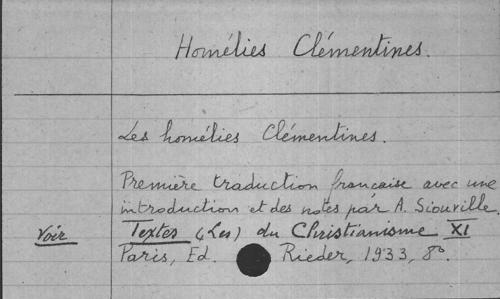 Homélies Clémentines.
Les homélies Clémentines.
Première traduction française avec une
introduction et des notes par A. Siouville.
Voir Textes (Les) du Christianisme XI
Paris, Ed. Rieder, 1933, 8º.